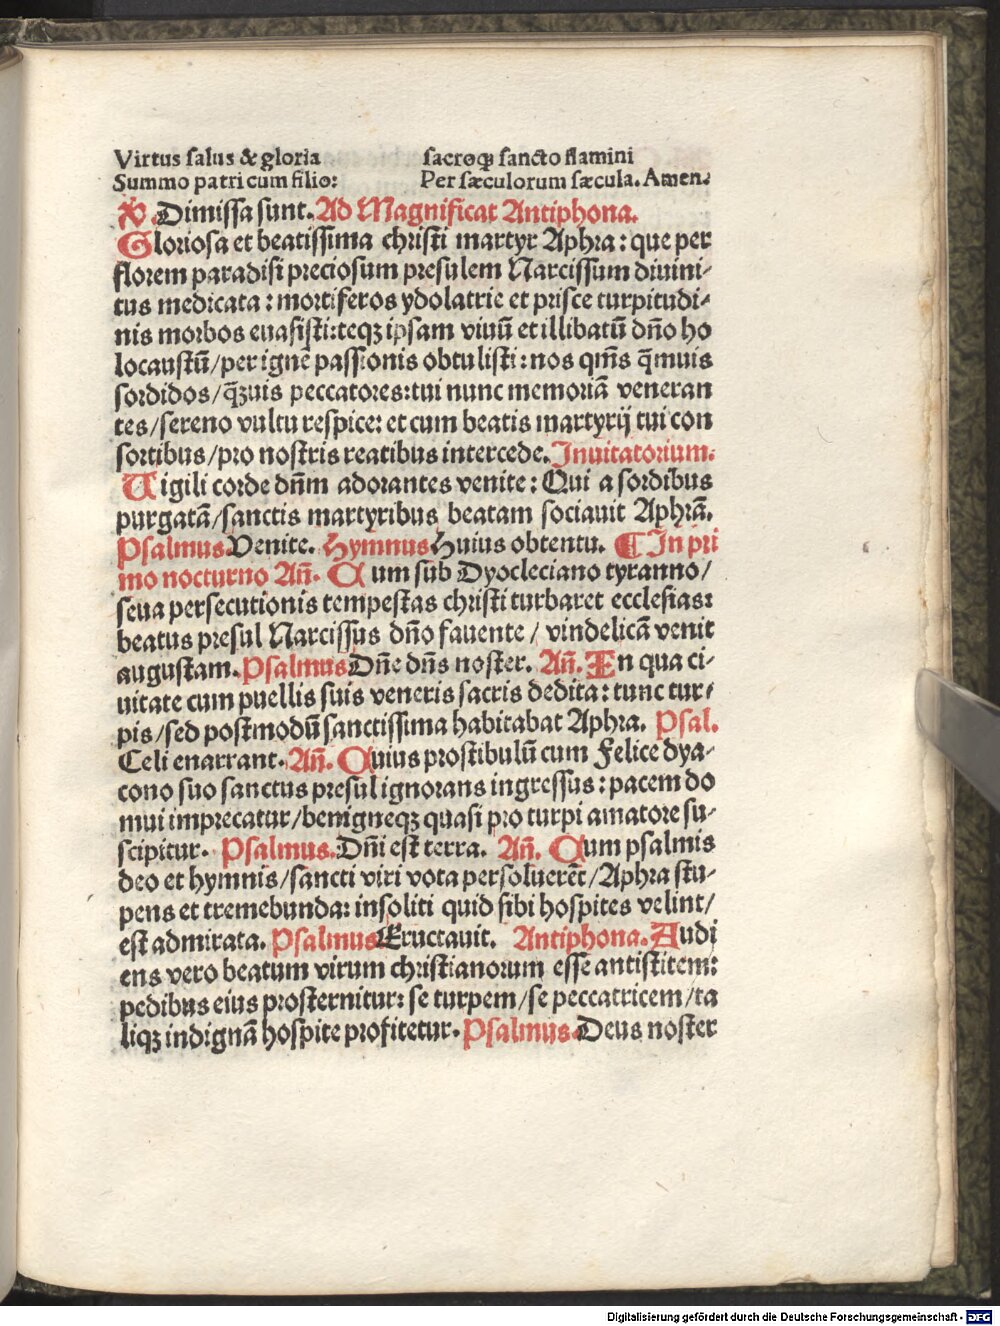 Virtus salus & gloria sacroqꝫ sancto flamini
Summo patri cum filio: Per sæculorum sæcula. Amen.
℣. Dimissa sunt. Ad Magnificat Antiphona.
Gloriosa et beatissima christi martyr Aphra: que per
florem paradisi preciosum presulem Narcissum diuini-
tus medicata: mortiferos ydolatrie et prisce turpitudi-
nis morbos euasisti: teqꝫ ipsam viuū et illibatū dño ho
locaustū/per ignē passionis obtulisti: nos qm̄s q̄muis
sordidos/q̄ꝫuis peccatores: tui nunc memoriā veneran
tes/sereno vultu respice: et cum beatis martyrij tui con
sortibus/pro nostris reatibus intercede. Inuitatorium.
Uigili corde dñm adorantes venite: Qui a sordibus
purgatā/sanctis martyribus beatam sociauit Aphrā.
Psalmus. Venite. Hymnus Huius obtentu. ¶ In pri
mo nocturno Añ. Cum sub Dyocleciano tyranno/
seua persecutionis tempestas christi turbaret ecclesias:
beatus presul Narcissus dño fauente / vindelicā venit
augustam. Psalmus Dñe dñs noster. Añ. In qua ci-
uitate cum puellis suis veneris sacris dedita: tunc tur-
pis/sed postmodū sanctissima habitabat Aphra. Psal.
Celi enarrant. Añ. Cuius prostibulū cum Felice dya-
cono suo sanctus presul ignorans ingressus: pacem do
mui imprecatur/benigneqꝫ quasi pro turpi amatore su-
scipitur. Psalmus. Dñi est terra. Añ. Cum psalmis
deo et hymnis/sancti viri vota persoluerēt/Aphra stu-
pens et tremebunda: insoliti quid sibi hospites velint/
est admirata. Psalmus Eructauit. Antiphona. Audi
ens vero beatum virum christianorum esse antistitem:
pedibus eius prosternitur: se turpem/se peccatricem/ta
liqꝫ indignā hospite profitetur. Psalmus. Deus noster
Digitalisierung gefördert durch die Deutsche Forschungsgemeinschaft - DFG